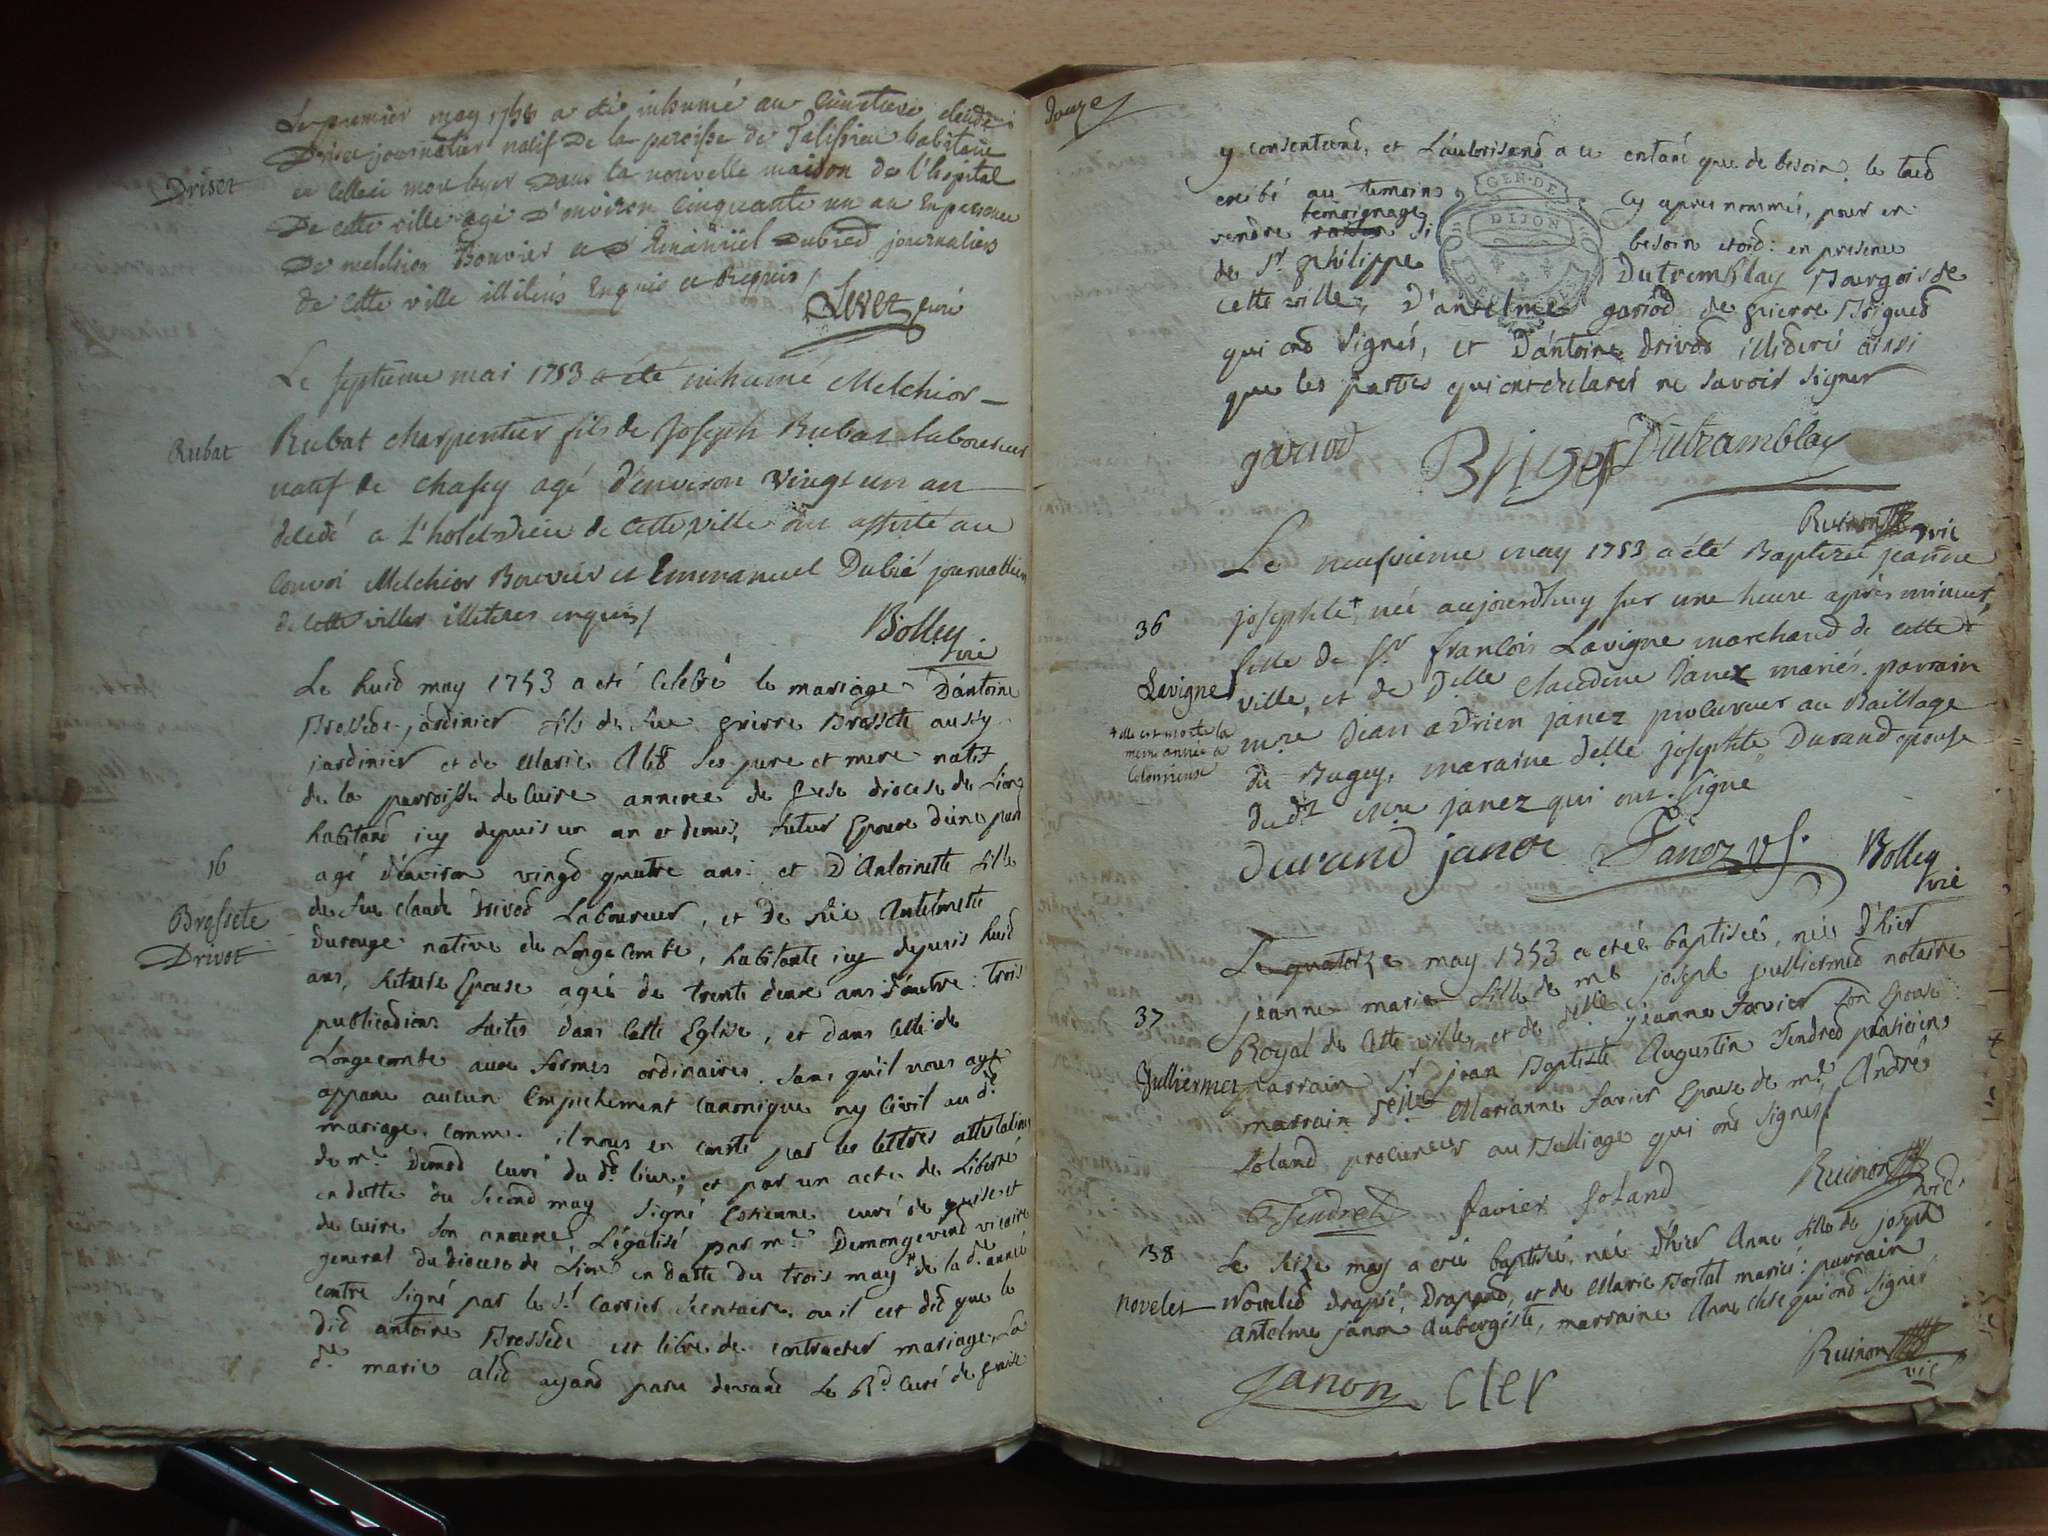 Le premier may 1753 a été inhumé au Cimetiere
Driset journalier natif de la paroisse de Talissieu habitant
Driset
en celleci mort hyer dans la nouvelle maison de l'hopital
De cette ville agé d'environ Cinquante un an En presence
De melchior Bouvier et D'Emanüel Dubied journaliers
de cette ville illiterés Enquis et Requis/
Levet curé
Le septieme mai 1753 a été inhumé Melchior
Rubat
Rubat charpentier fils de Joseph Rubat Laboureur
natif de Chasey agé d'environ vingt un an
décédé a L'hotel Dieu de Cette ville ont assisté au
Convoi Melchior Bouvier et Emmanuel Dubié journaliers
de Cette ville illiteres enquis/
Bolley
vic
Le huid may 1753 a eté Celebré le mariage D'antoine
Brossede jardinier fils de feu pierre Brossete aussy
jardinier et de Marie Alid Ses pere et mere natif
de la parroisse de Cuire annexe de diocese de Lion
habitand icy depuis un an et demis, futur Epoux d'une pard
agé d'environ vingd quatre ans: et D'Antoinette fille
16
Brossete
Drivot
de feu Claude Drivod Laboureur, et de feüe Antelmette
Durouge native de Longecombe, habitante icy depuis huid
ans, future Epouse agée de trente deux ans d'autre: trois
publications faites dans Cette Eglise, et dans Celle de
Longecombe aux formes ordinaires. Sans qu'il nous aye
apparu aucun Empechement Canonique ny Civil au d.t
mariage. comme il nous en conste par les lettres attestatoires
de m.re Demod Curé du d.t lieu; et par un acte de Liberté
en datte du Second may Signé Estienne curé de et
de Cuire Son annexe Légalisé par m.re Demongevend vicaire
general du diocese de Lion en datte du trois may de la d.e année
contre Signé par le S.r Carrier Secretaire. ou il est did que le
did antoine Brossede est libre de contracter mariage, La
d.e marie alid ayand paru devand Le R.d Curé de
douze
y consentend, et L'autorisand a ce entant que de besoin, le tout
au temoins Cy apres nommés, pour en
temoignage
rendre raison Si besoin etoid: en presence
de S.r philippe Dutremblay Bourgois de
cette ville, D'antelme gariod de pierre Brigued
qui ond Signés, et D'antoine drivod illideré ainsi
que les parties qui ont declarés ne Savoir Signer
GEN. DE
DIJON
gariod Briget Dutramblay
Ruinon vic
Le neufvieme may 1753 a été Baptizée jeanne
36
josephte + née aujourdhuy sur une heure aprés minuit,
fille de S.r françois Lavigne marchand de cette
Lavigne
ville, et de D.elle Claudine Janex mariés. parrain
+ elle est morte la
meme année a
Colomieux
m.re Jean adrien janez procureur au Baillage
du Bugey, maraine d.elle josephte Durand epouse
du d.t m.re janez qui ont signé
durand janex Janez Bolley
vic
Le quatorze may 1753 a eté baptisée, née d'hier
37
jeanne marie fille de m.e joseph jullierméd notaire
Royal de Cette ville, et de d.elle jeanne favier Son Epouse:
Julliermet
parrain S.r jean Baptiste Augustin Tendred praticien,
marrain d.elle Marianne favier Epouse de m.e André
Joland procureur au Balliage qui ond Signés/
Tendret favier Joland Ruinon
vic
38
Le Seize may a eté baptisée, née d'hier Anne fille de joseph
Novelet
Noveled Drapand, et de Marie Bortal mariés: parrain
Antelme janon Aubergiste, marraine Anne Cler qui ond Signés
Ruinon
vic
Janon Cler